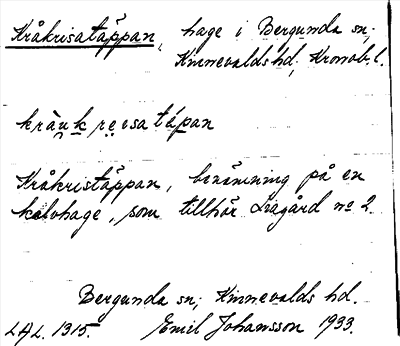 Kråkrisatäppan, hage i Bergunda sn;
Kinnevalds hd, Kronob. l.
kràu̯k re̯esa tápan
Kråkristäppan, benämning på en
kalvhage, som tillhör Liagård nº 2.
Bergunda sn; Kinnevalds hd.
LAL. 1315. Emil Johansson 1933.